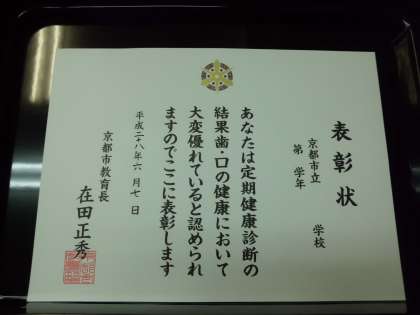 表彰状
京都市立 学校
第 学年
あなたは定期健康診断の
結果歯・口の健康において
大変優れていると認められ
ますのでここに表彰します
平成二八年六月七日
京都市教育長
在田正秀